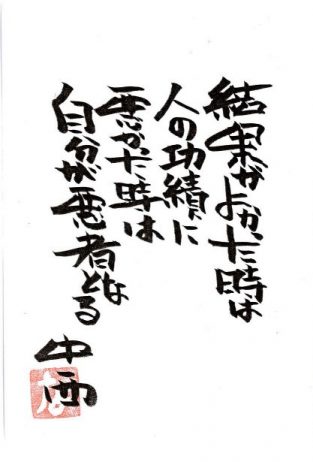 結果がよかった時は
人の功績に
悪かった時は
自分が悪者となる
中西